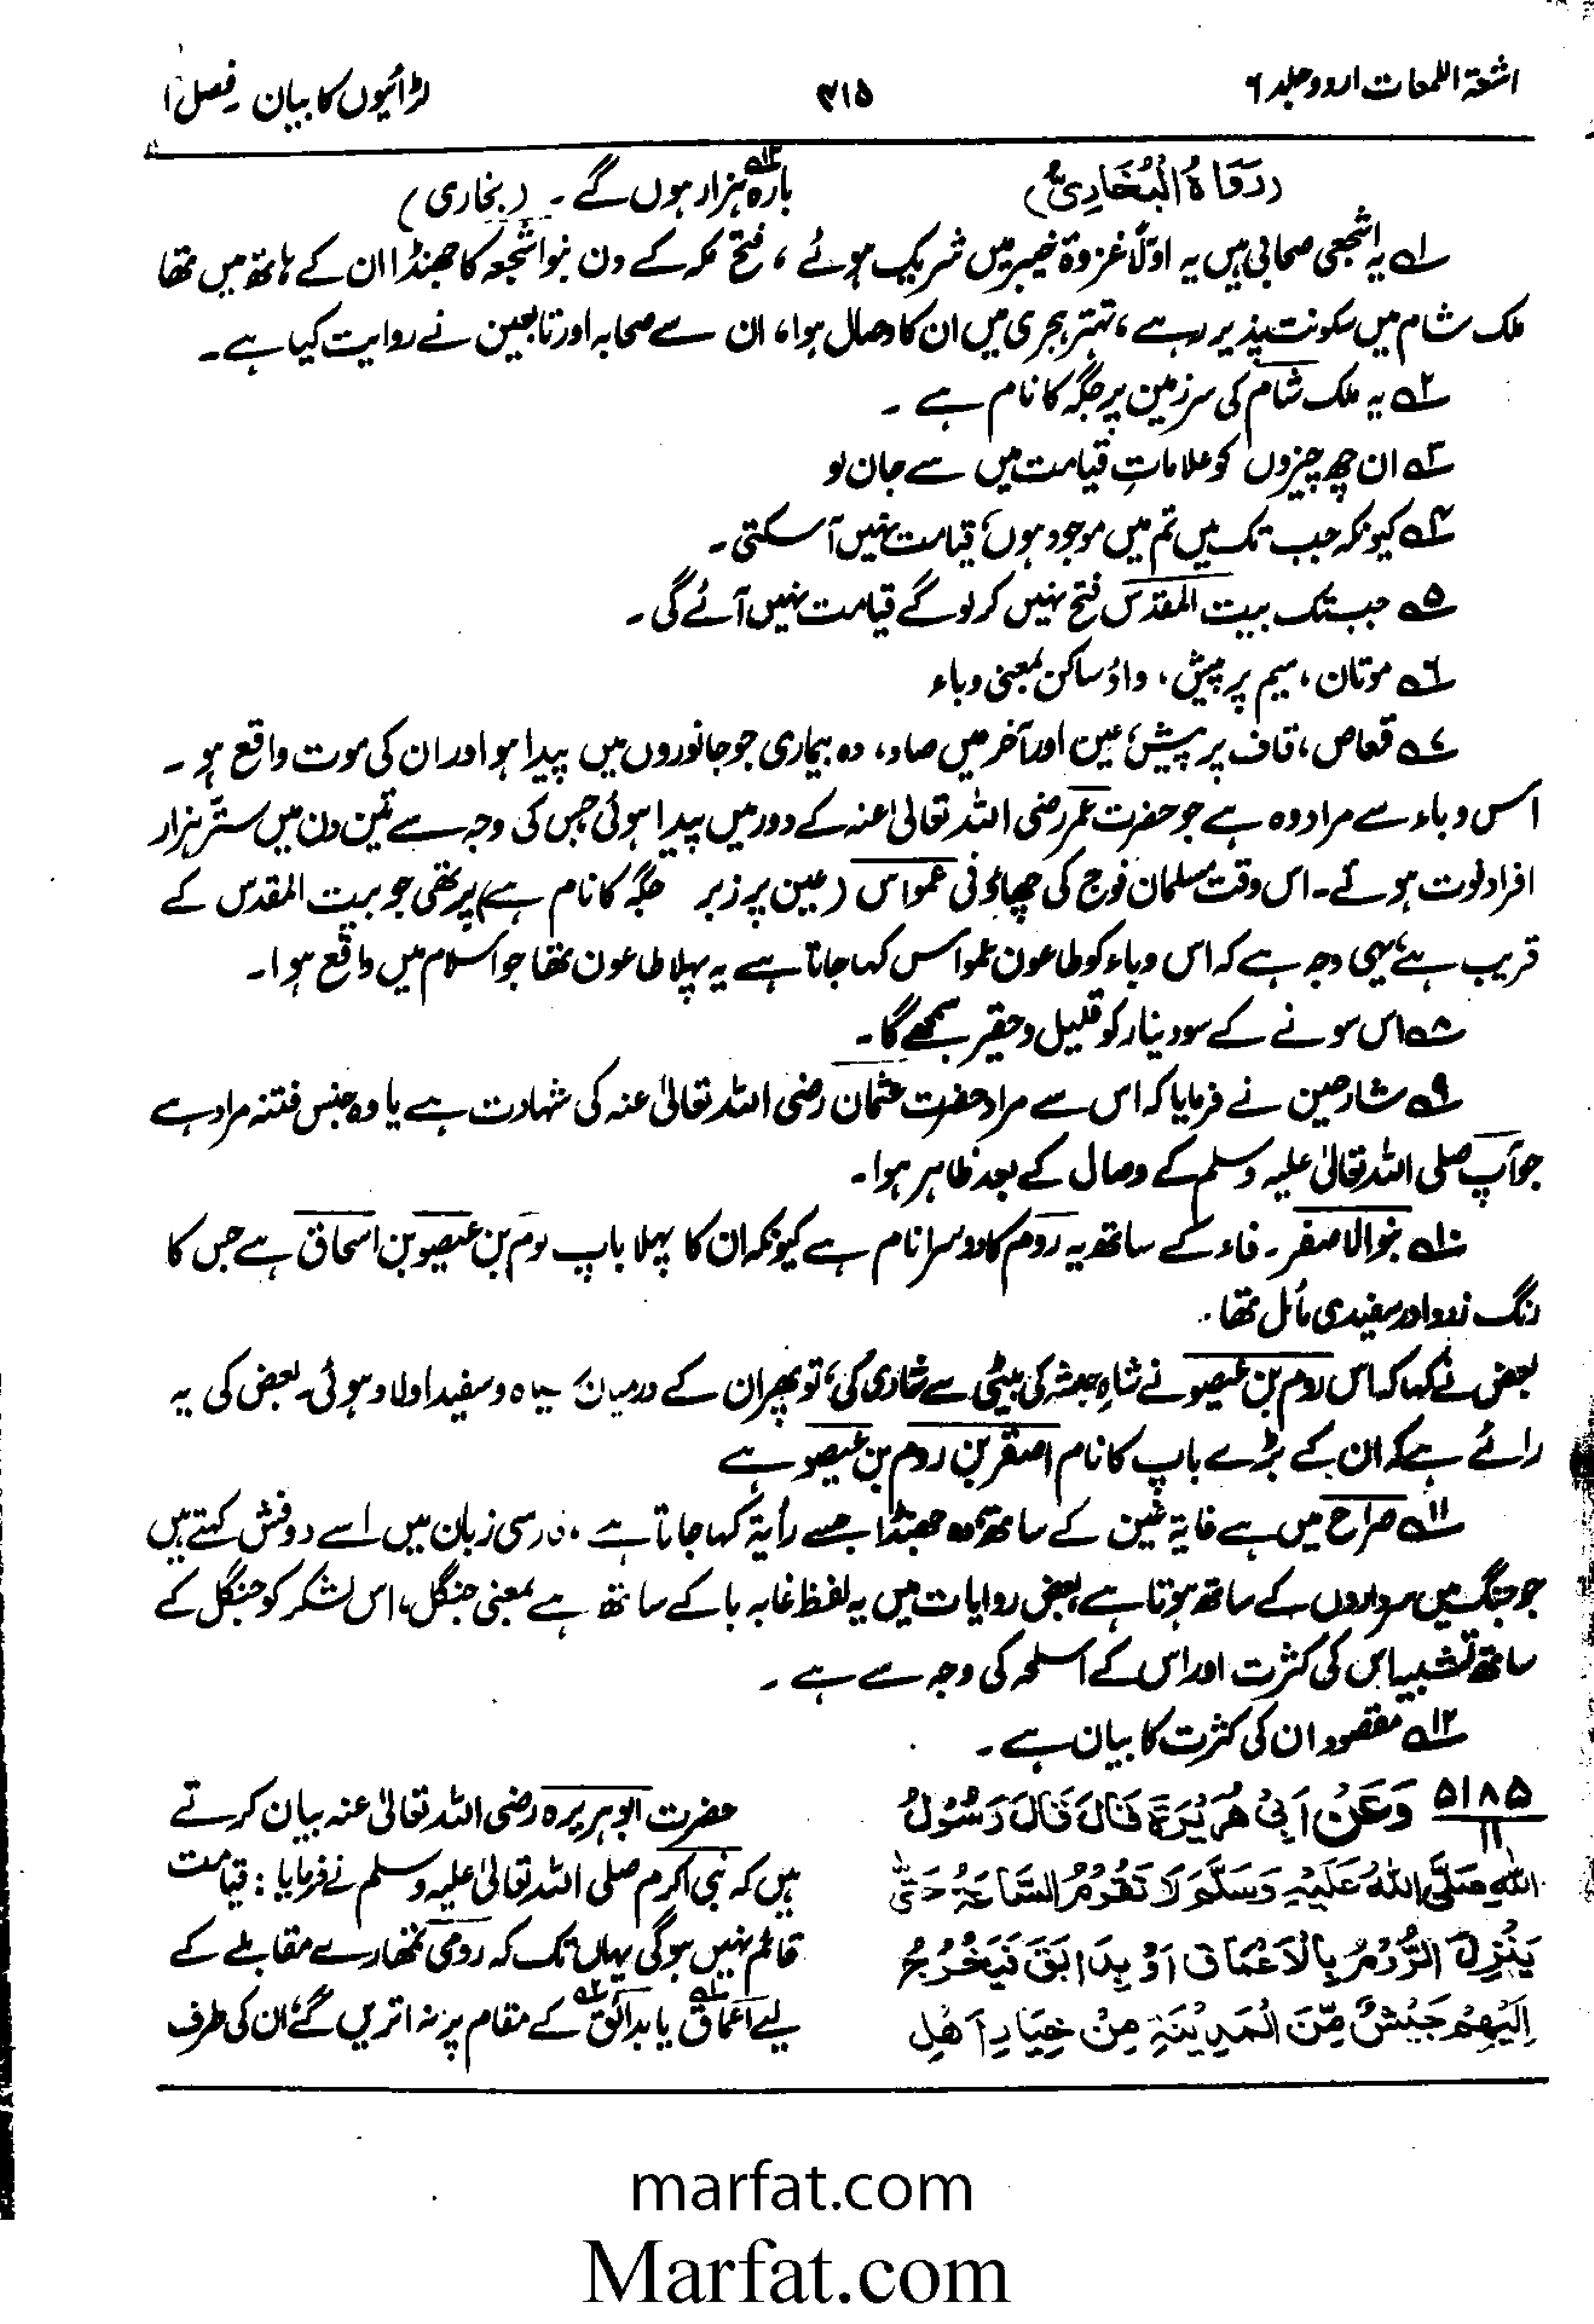 اشعۃ اللمعات اردو جلد ۶
۳۱۵
لڑائیوں کا بیان ۔ فصل ۱
(رَوَاہُ الْبُخَارِیُّ)
بارہ ۱۲؎ ہزار ہوں گے ۔ (بخاری)
۱؎ یہ اشجعی صحابی ہیں یہ اوّلاً غزوۂ خیبر میں شریک ہوئے ، فتح مکہ کے دن بنو اشجعہ کا جھنڈا ان کے ہاتھ میں تھا
ملک شام میں سکونت پذیر رہے ، تہتر ہجری میں ان کا وصال ہوا ، ان سے صحابہ اور تابعین نے روایت کیا ہے ۔
۲؎ یہ ملک شام کی سرزمین پر جگہ کا نام ہے ۔
۳؎ ان چھ چیزوں کو علاماتِ قیامت میں سے جان لو
۴؎ کیونکہ جب تک میں تم میں موجود ہوں، قیامت نہیں آ سکتی ۔
۵؎ جب تک بیت المقدس فتح نہیں کر لو گے قیامت نہیں آئے گی ۔
۶؎ موتان ، میم پر پیش ، واؤ ساکن بمعنی وباء
۷؎ قعاص ، قاف پر پیش، عین اور آخر میں صاد ، وہ بیماری جو جانوروں میں پیدا ہو اور ان کی موت واقع ہو ۔
اس وباء سے مراد وہ ہے جو حضرت عمر رضی اللہ تعالیٰ عنہ کے دور میں پیدا ہوئی جس کی وجہ سے تین دن میں ستّر ہزار
افراد فوت ہوئے ۔ اس وقت مسلمان فوج کی چھاؤنی عمواس (عین پر زبر جگہ کا نام ہے) پر تھی جو بیت المقدس کے
قریب ہے، یہی وجہ ہے کہ اس وباء کو طاعون عمواس کہا جاتا ہے یہ پہلا طاعون تھا جو اسلام میں واقع ہوا ۔
۸؎ اس سونے کے سو دینار کو قلیل و حقیر سمجھے گا ۔
۹؎ شارحین نے فرمایا کہ اس سے مراد حضرت عثمان رضی اللہ تعالیٰ عنہ کی شہادت ہے یا وہ جنس فتنہ مراد ہے
جو آپ صلی اللہ تعالیٰ علیہ وسلم کے وصال کے بعد ظاہر ہوا ۔
۱۰؎ بنو الاصفر ۔ فاء کے ساتھ یہ روم کا دوسرا نام ہے کیونکہ ان کا پہلا باپ روم بن عیصو بن اسحاق ہے جس کا
رنگ زرد اور سفیدی مائل تھا ۔
بعض نے کہا کہ اس روم بن عیصو نے شاہِ حبشہ کی بیٹی سے شادی کی، تو پھر ان کے درمیان سیاہ و سفید اولاد ہوئی ۔ بعض کی یہ
رائے ہے کہ ان کے بڑے باپ کا نام اصفر بن روم بن عیصو ہے
۱۱؎ صراح میں ہے غایۃ غین کے ساتھ وہ جھنڈا جسے رأیۃ کہا جاتا ہے ، فارسی زبان میں اسے دوفش کہتے ہیں
جو جنگ میں سرداروں کے ساتھ ہوتا ہے، بعض روایات میں یہ لفظ غابہ با کے ساتھ ہے بمعنی جنگل، اس لشکر کو جنگل کے
ساتھ تشبیہ اس کی کثرت اور اس کے اسلحہ کی وجہ سے ہے ۔
۱۲؎ مقصود ان کی کثرت کا بیان ہے ۔
۵۱۸۵ وَعَنْ اَبِیْ ھُرَیْرَۃَ قَالَ قَالَ رَسُوْلُ
۱۱
اللہِ صَلَّی اللہُ عَلَیْہِ وَسَلَّمَ لَا تَقُوْمُ السَّاعَۃُ حَتّٰی
یَنْزِلَ الرُّوْمُ بِالْاَعْمَاقِ اَوْ بِدَابَقَ فَیَخْرُجُ
اِلَیْھِمْ جَیْشٌ مِّنَ الْمَدِیْنَۃِ مِنْ خِیَارِ اَھْلِ
حضرت ابو ہریرہ رضی اللہ تعالیٰ عنہ بیان کرتے
ہیں کہ نبی اکرم صلی اللہ تعالیٰ علیہ وسلم نے فرمایا : قیامت
قائم نہیں ہوگی یہاں تک کہ رومی تمھارے مقابلے کے
لیے اعماق ۱؎ یا بدابق ۲؎ کے مقام پر نہ اتریں گے، ان کی طرف
marfat.com
Marfat.com